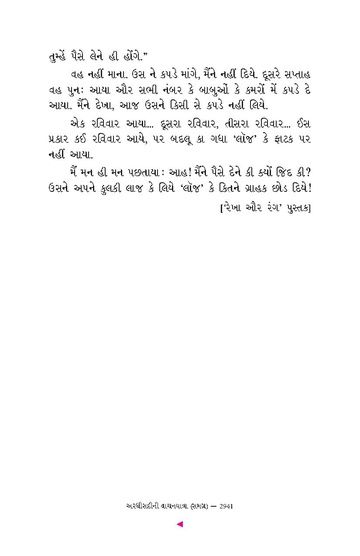 તુમ્હેં પૈસે લેને હી હોંગે."
વહ નહીં માના. ઉસ ને કપડે માંગે, મૈંને નહીં દિયે. દૂસરે સપ્તાહ
વહ પુનઃ આયા ઔર સભી નંબર કે બાબુઓં કે કમરોં મેં કપડે દે
આયા. મૈંને દેખા, આજ ઉસને કિસી સે કપડે નહીં લિયે.
એક રવિવાર આયા... દૂસરા રવિવાર, તીસરા રવિવાર... ઈસ
પ્રકાર કઈ રવિવાર આયે, પર બદલૂ કા ગધા 'લૉજ' કે ફાટક પર
નહીં આયા.
મૈં મન હી મન પછતાયા : આહ! મૈંને પૈસે દેને કી ક્યોં જિદ કી?
ઉસને અપને કુલકી લાજ કે લિયે 'લૉજ' કે કિતને ગ્રાહક છોડ દિયે!
['રેખા ઔર રંગ' પુસ્તક]
અરધીસદીની વાચનયાત્રા (સમગ્ર) — 2941